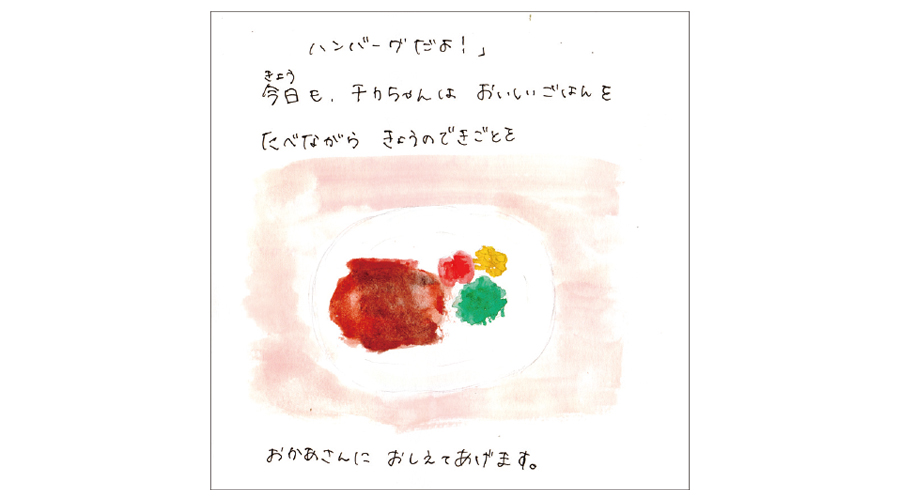 ハンバーグだよ！」
きょう
今日も、チカちゃんは おいしいごはんを
たべながら きょうのできごとを
おかあさんに おしえてあげます。